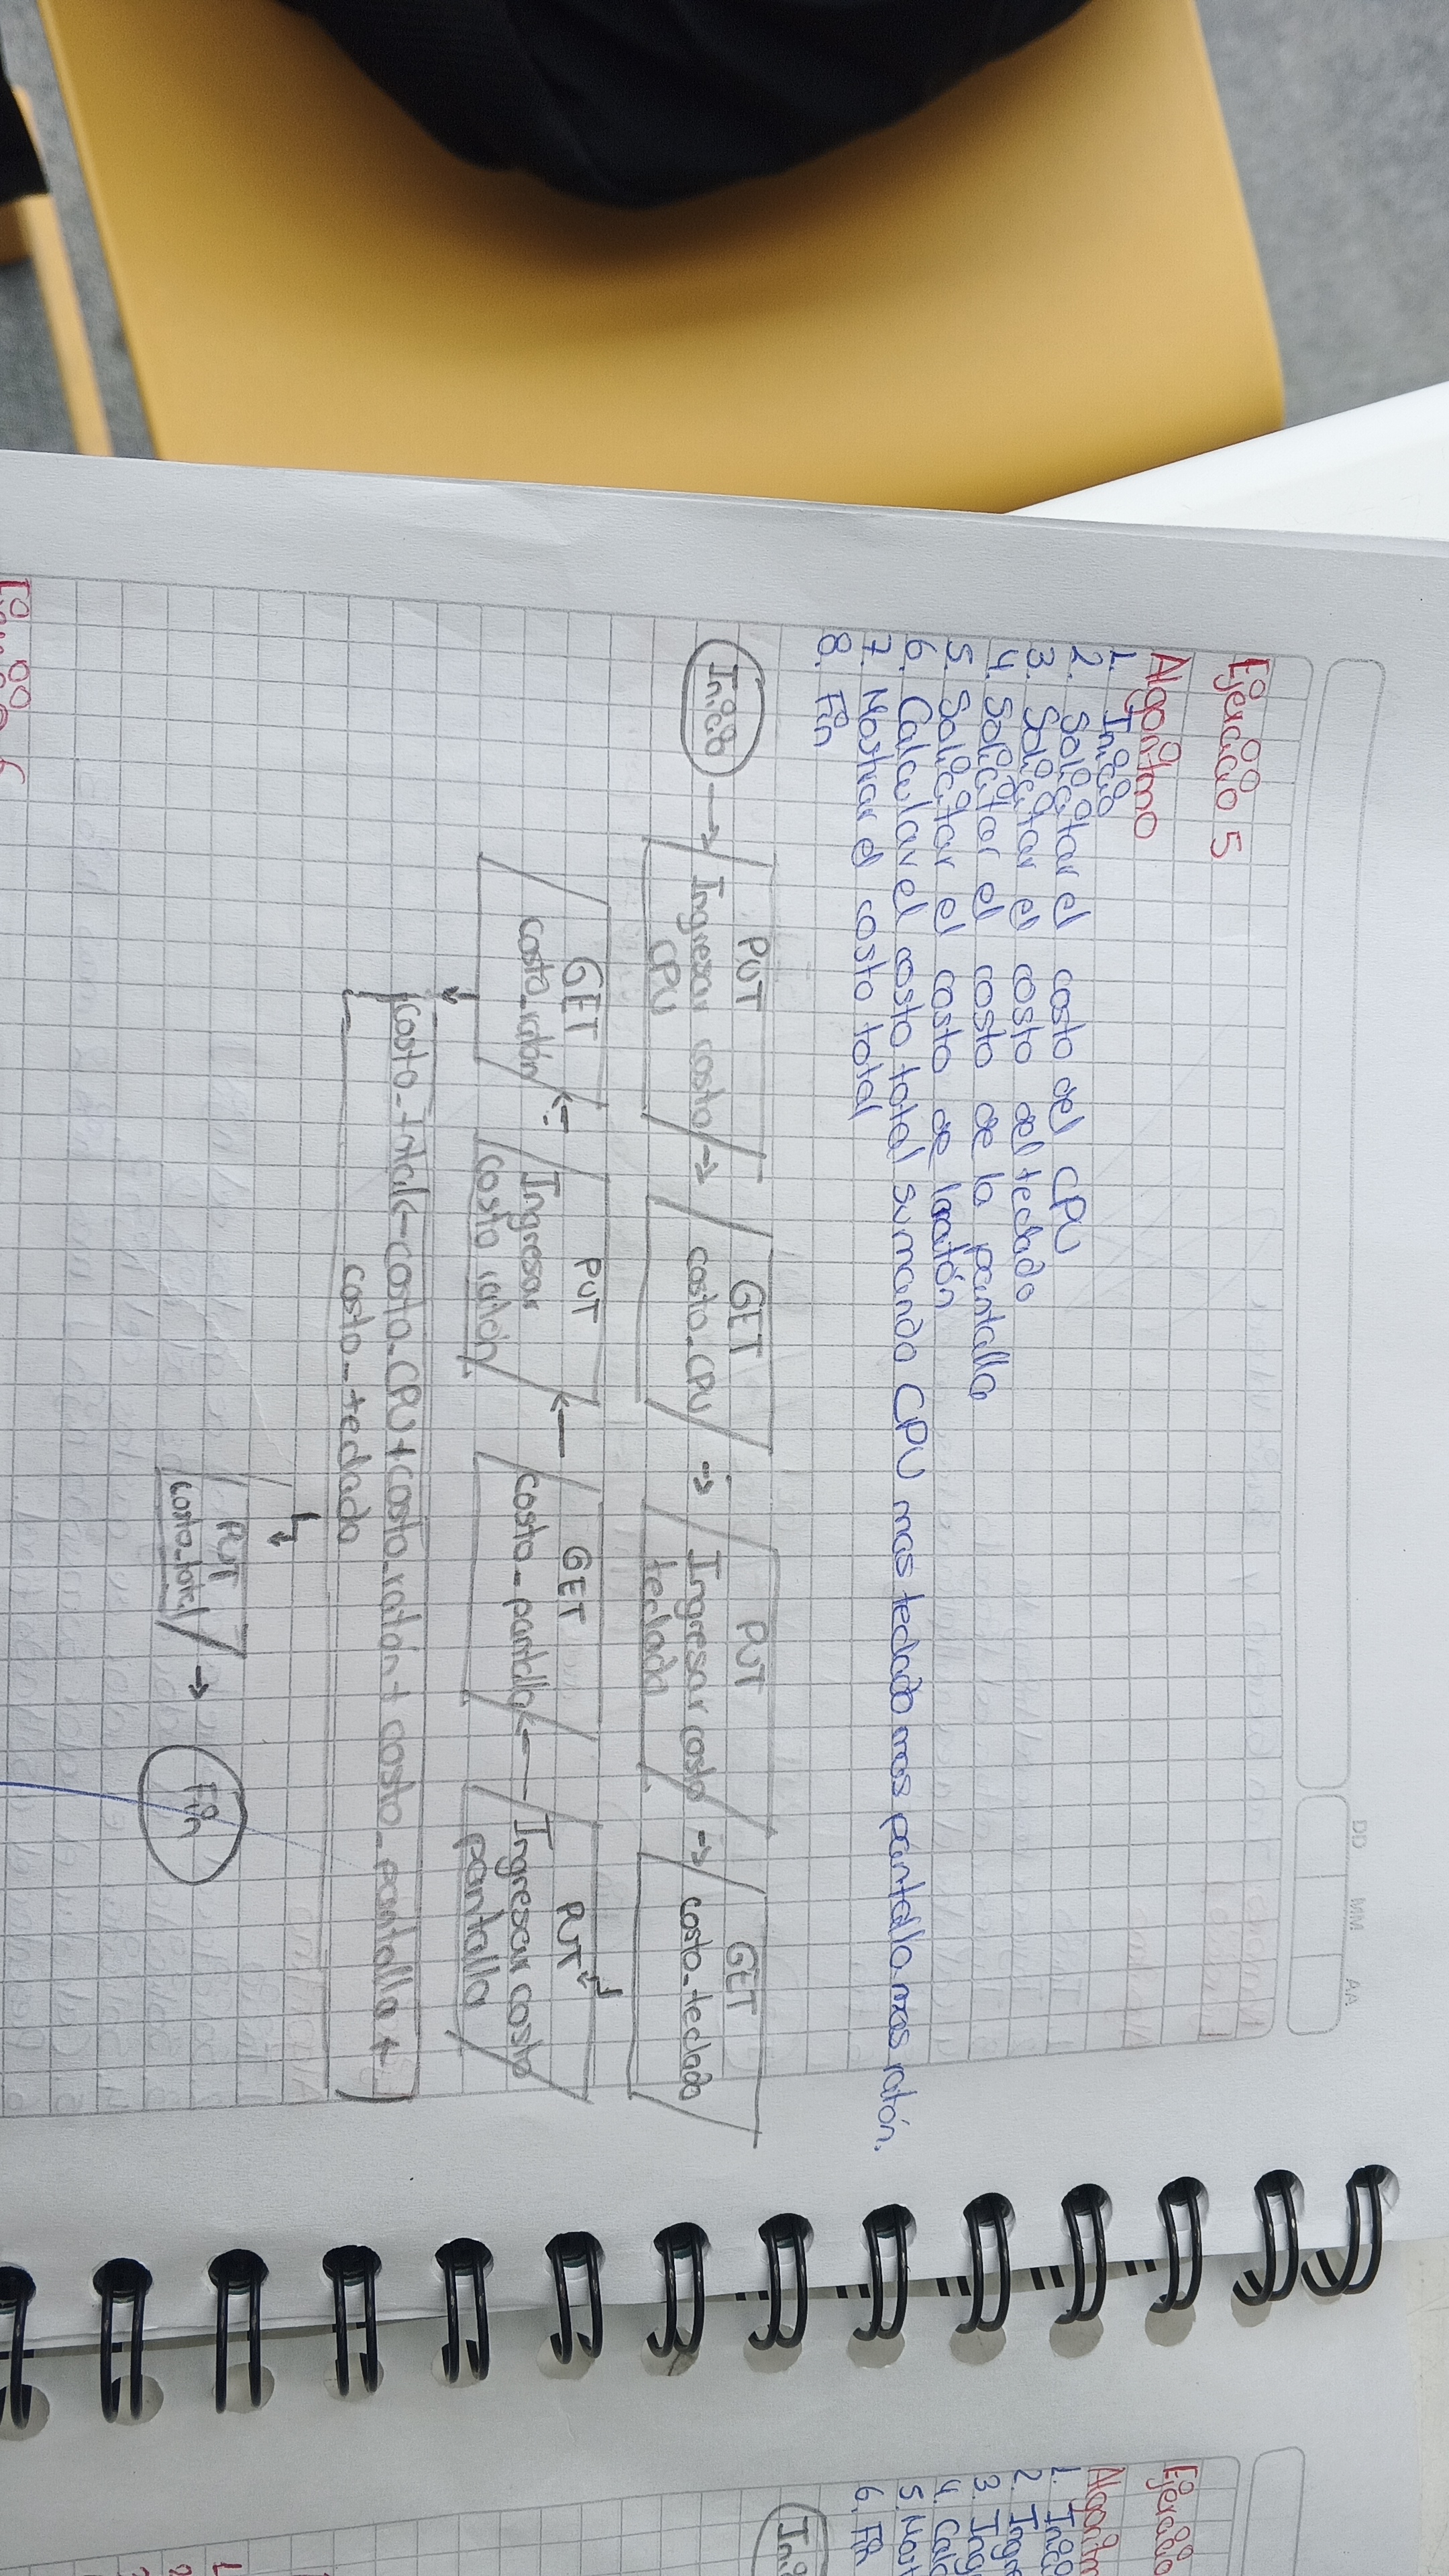 DD MM AA
Ejercicio 5
Algoritmo
1. Inicio
2. Solicitar el costo del CPU
3. Solicitar el costo del teclado
4. Solicitar el costo de la pantalla
5. Solicitar el costo de ratón
6. Calcular el costo total sumando CPU mas teclado mas pantalla mas ratón.
7. Mostrar el costo total
8. Fin
Inicio
PUT
Ingresar costo
CPU
GET
costo_CPU
PUT
Ingresar costo
teclado
GET
costo_teclado
PUT
Ingresar costo
pantalla
GET
costo_pantalla
PUT
Ingresar
costo ratón
GET
costo_ratón
costo_total<-costo_CPU+costo_ratón+costo_pantalla+
costo_teclado
PUT
costo_total
Fin
Ejercicio
1.
2.
3.
4.
5.
6. Fin